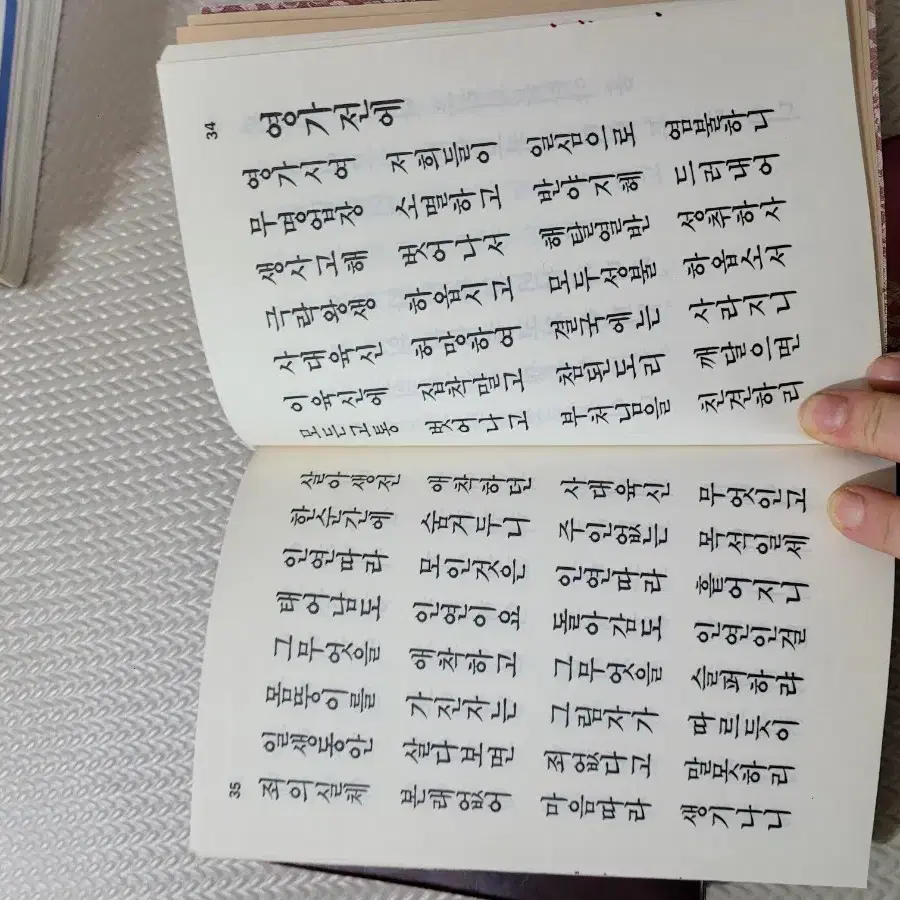 34
영가전에
영가시여 저희들이 일심으로 염불하니
무명업장 소멸하고 반야지혜 드러내어
생사고해 벗어나서 해탈열반 성취하사
극락왕생 하옵시고 모두성불 하옵소서
사대육신 허망하여 결국에는 사라지니
이육신에 집착말고 참된도리 깨달으면
모든고통 벗어나고 부처님을 친견하리
살아생전 애착하던 사대육신 무엇인고
한순간에 숨거두니 주인없는 목석일세
인연따라 모인것은 인연따라 흩어지니
태어남도 인연이요 돌아감도 인연인걸
그무엇을 애착하고 그무엇을 슬퍼하랴
몸뚱이를 가진자는 그림자가 따르듯이
일생동안 살다보면 죄없다고 말못하리
죄의실체 본래없어 마음따라 생기나니
35